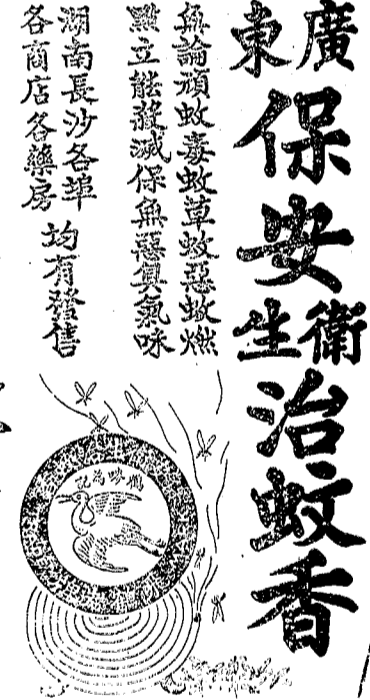 廣東
保安
衛生
治蚊香
無論頑蚊毒蚊草蚊惡蚊燃
點立能殺滅保無惡臭氣味
湖南長沙各埠
各商店各藥房
均有發售
鶴嘜為記